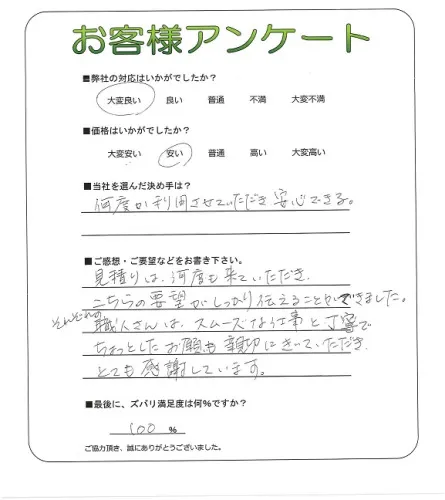 お客様アンケート
■弊社の対応はいかがでしたか？
大変良い 良い 普通 不満 大変不満
■価格はいかがでしたか？
大変安い 安い 普通 高い 大変高い
■当社を選んだ決め手は？
何度か利用させていただき安心できる。
■ご感想・ご要望などをお書き下さい。
見積りは、何度も来ていただき、
こちらの要望がしっかり伝えることができました。
それぞれの
職人さんは、スムーズな仕事と丁寧で
ちょっとしたお願いも親切にきいていただき
とても感謝しています。
■最後に、ズバリ満足度は何%ですか？
100 %
ご協力頂き、誠にありがとうございました。